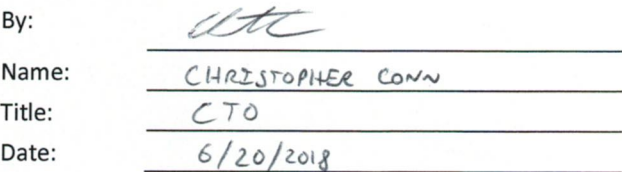 By:
Name: CHRISTOPHER CONN
Title: CTO
Date: 6/20/2018